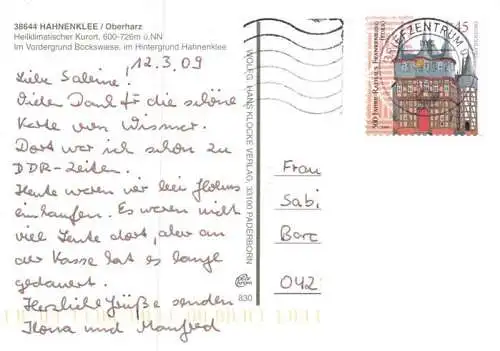 38644 HAHNENKLEE / Oberharz
Heilklimatischer Kurort, 600-726m ü.NN
Im Vordergrund Bockswiese, im Hintergrund Hahnenklee
12.3.09
Liebe Sabine!
Vielen Dank für die schöne
Karte von Wismar.
Dort war ich schon zu
DDR-Zeiten.
Heute waren wir bei
einkaufen. Es waren nicht
viel Leute dort, aber an
der Kasse hat es lange
gedauert.
Herzliche Grüße senden
Ilona und Manfred
WOLFG. HANS KLOCKE VERLAG, 33100 PADERBORN
830
Frau
Sabi
042
BRIEFZENTRUM
45
500 JAHRE RATHAUS FRANKENBERG (EDER)